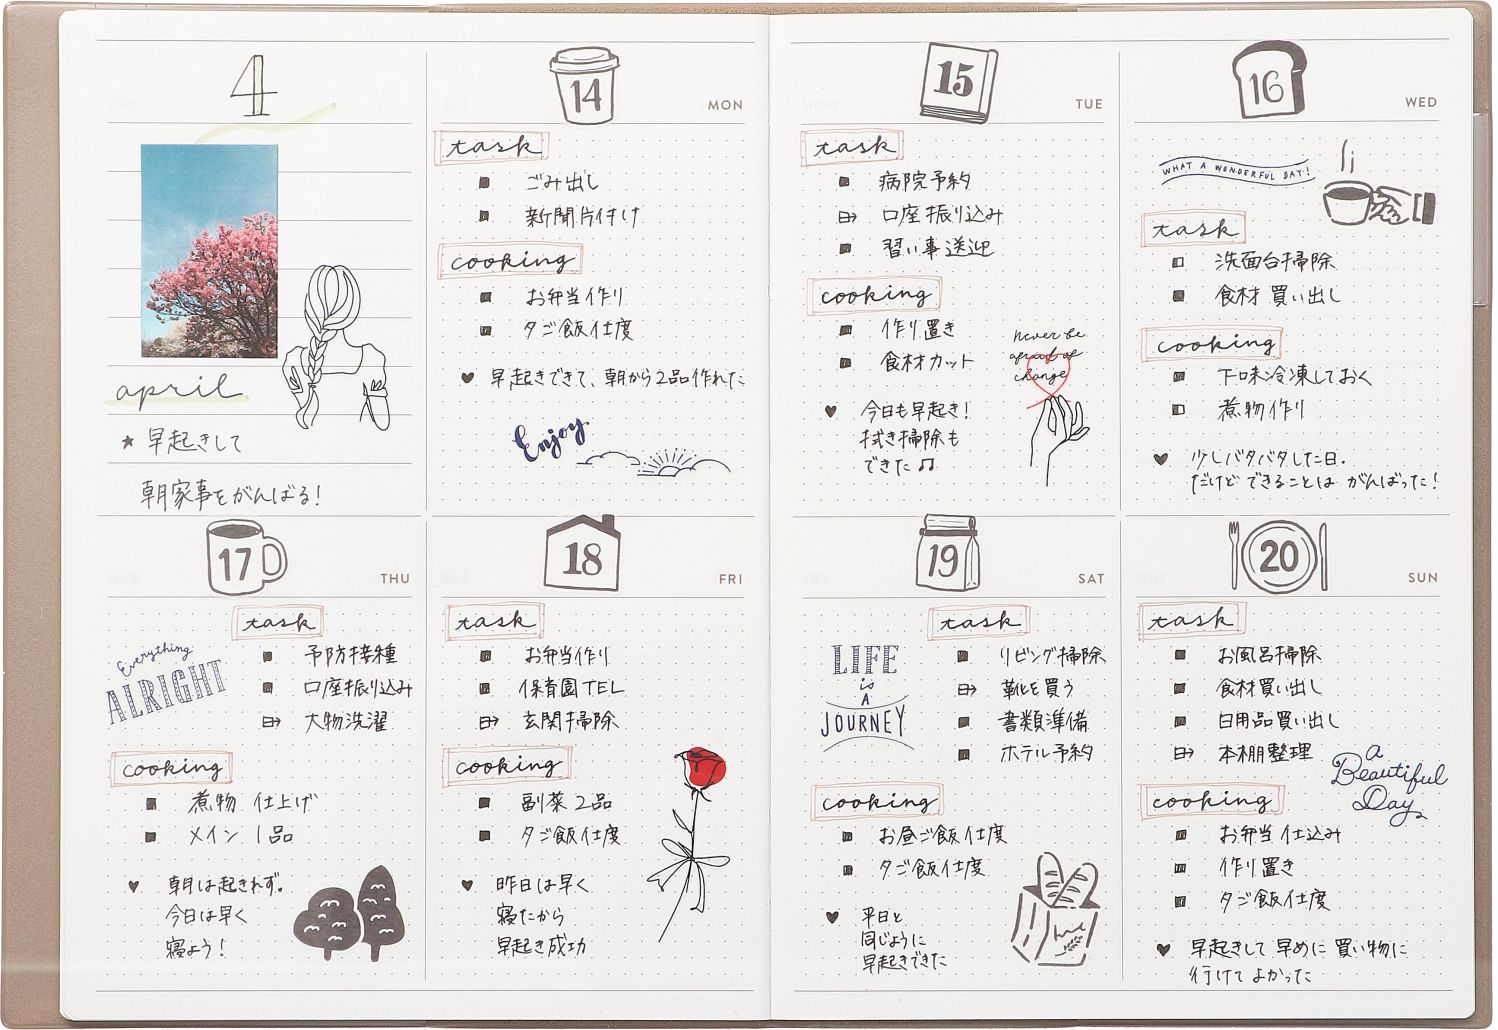 4
april
★ 早起きして
朝家事をがんばる!
14
MON
task
■ ごみ出し
■ 新聞片付け
cooking
■ お弁当作り
■ 夕ご飯仕度
♥ 早起きできて、朝から2品作れた
Enjoy
15
TUE
task
■ 病院予約
⇨ 口座振り込み
■ 習い事送迎
cooking
■ 作り置き
■ 食材カット
never be
afraid of
change
♥ 今日も早起き!
拭き掃除も
できた♫
16
WED
WHAT A WONDERFUL DAY!
task
■ 洗面台掃除
■ 食材買い出し
cooking
■ 下味冷凍しておく
■ 煮物作り
♥ 少しバタバタした日.
だけど できることは がんばった!
17
THU
Everything
ALRIGHT
task
■ 予防接種
■ 口座振り込み
⇨ 大物洗濯
cooking
■ 煮物 仕上げ
■ メイン 1品
♥ 朝は起きれず。
今日は早く
寝よう!
18
FRI
task
■ お弁当作り
■ 保育園TEL
⇨ 玄関掃除
cooking
■ 副菜2品
■ 夕ご飯仕度
♥ 昨日は早く
寝たから
早起き成功
19
SAT
LIFE
is
A
JOURNEY
task
■ リビング掃除
⇨ 靴を買う
■ 書類準備
■ ホテル予約
cooking
■ お昼ご飯仕度
■ 夕ご飯仕度
♥ 平日と
同じように
早起きできた
20
SUN
task
■ お風呂掃除
■ 食材買い出し
■ 日用品買い出し
⇨ 本棚整理
a
Beautiful
Day
cooking
■ お弁当仕込み
■ 作り置き
■ 夕ご飯仕度
♥ 早起きして 早めに 買い物に
行けて よかった